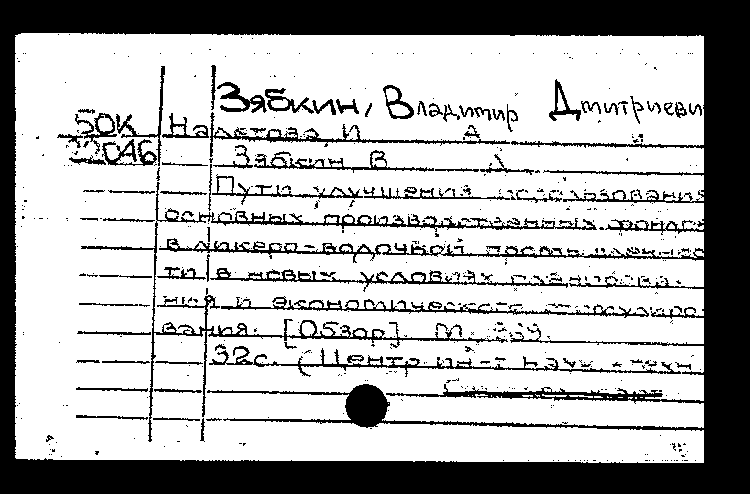 Зябкин, Владимир Дмитриеви
50К Налетова И А и
22046 Зябкин В Д
Пути улучшения использования
основных производственных фондов
в ликеро-водочной
ти в новых условиях планирова-
ния и экономического стимулиро-
вания. [Обзор]. М.
32с. (Центр ин-т науч -техн